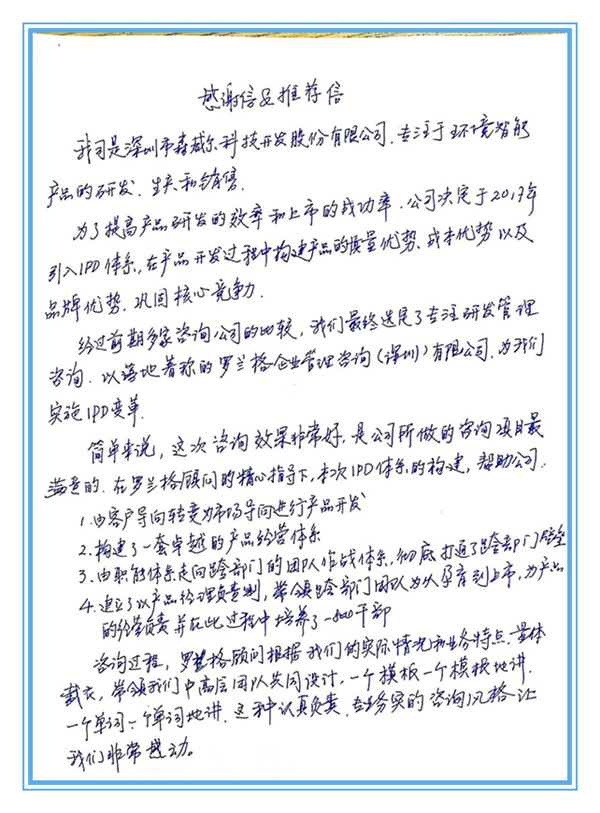 感谢信及推荐信
我司是深圳市森威尔科技开发股份有限公司、专注于环境智能
产品的研发、生产和销售.
为了提高产品研发的效率和上市的成功率.公司决定于2017年
引入IPD体系,在产品开发过程中构建产品的质量优势、成本优势以及
品牌优势.巩固核心竞争力.
经过前期多家咨询公司的比较,我们最终选定了专注研发管理
咨询、以落地著称的罗兰格企业管理咨询(深圳)有限公司,为我们
实施IPD变革.
简单来说,这次咨询效果非常好,是公司所做的咨询项目最
满意的.在罗兰格顾问的精心指导下,本次IPD体系的构建,帮助公司.
1.由客户导向转变为市场导向进行产品开发
2.构建了一套卓越的产品经营体系
3.由职能体系走向跨部门的团队作战体系,彻底打通了跨部门壁垒
4.建立了以产品经理负责制,带领跨部门团队为从孕育到上市,为产品
的经营负责并在此过程中培养了一批干部
咨询过程,罗兰格顾问根据我们的实际情况和业务特点.量体
裁衣,带领我们中高层团队共同设计,一个模板一个模板地讲.
一个单词一个单词地讲.这种认真负责、专业务实的咨询风格让
我们非常感动。